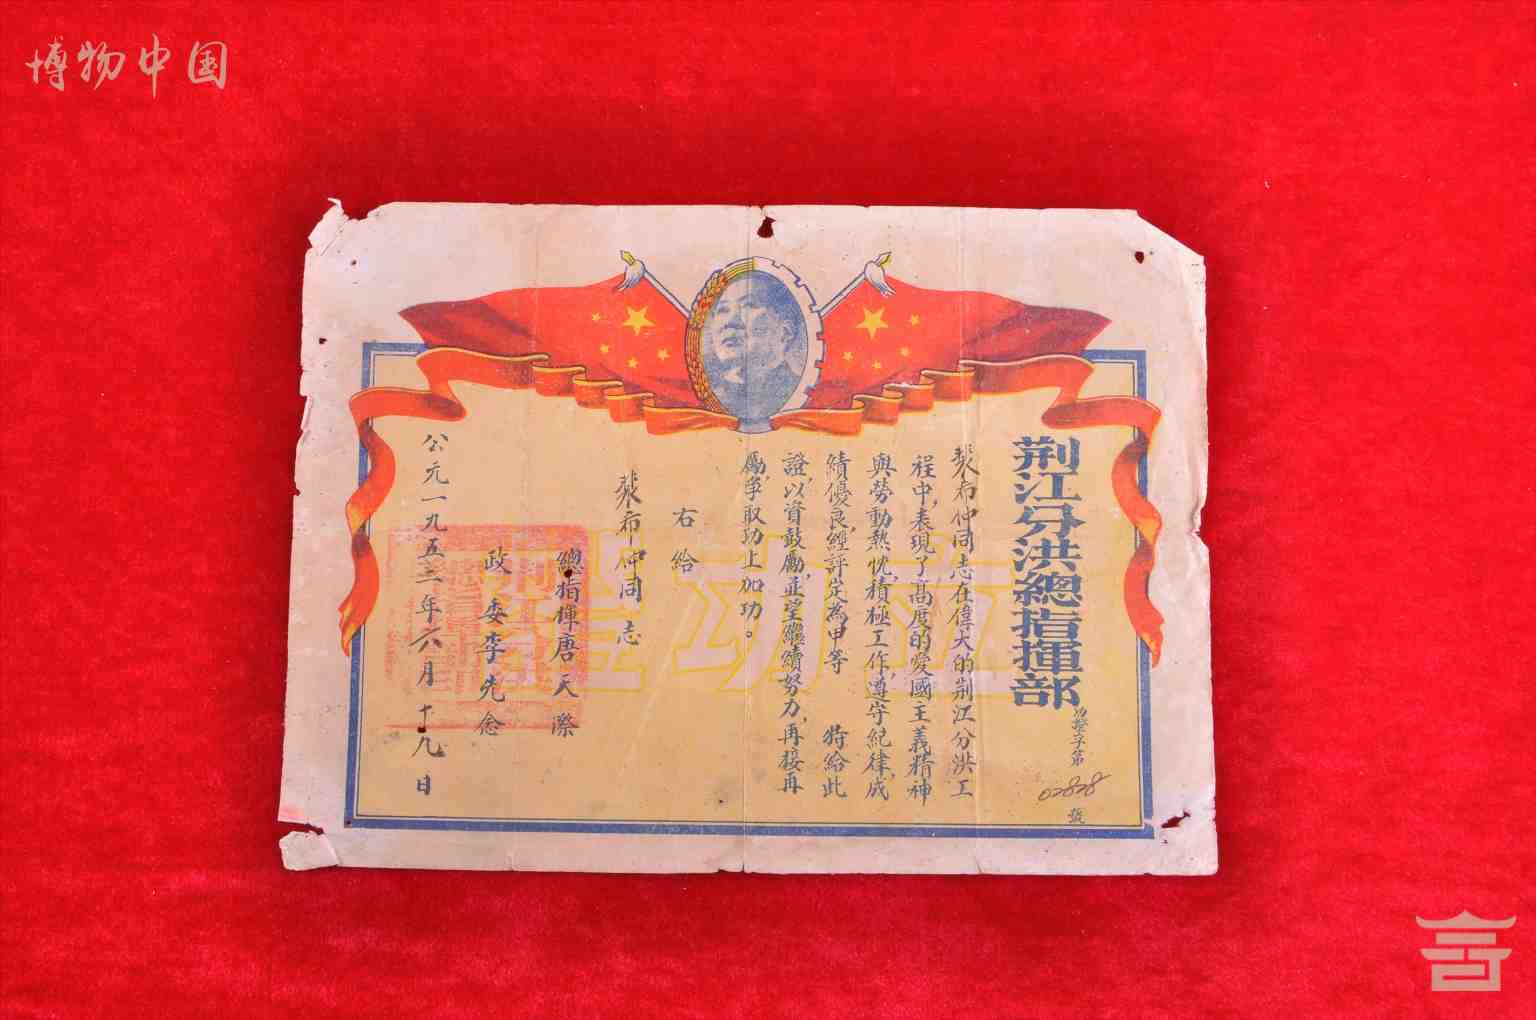 博物中国
荆江分洪總指揮部
功證字第
02828
號
裴希仲同志在偉大的荆江分洪工
程中,表現了高度的愛國主義精神
與勞動熱忱,積極工作,遵守紀律,成
績優良,經評定為甲等 特給此
證,以資鼓勵,並望繼續努力,再接再
勵,爭取功上加功。
右給
裴希仲同志
總指揮唐天際
政委李先念
公元一九五二年六月十九日
立功證